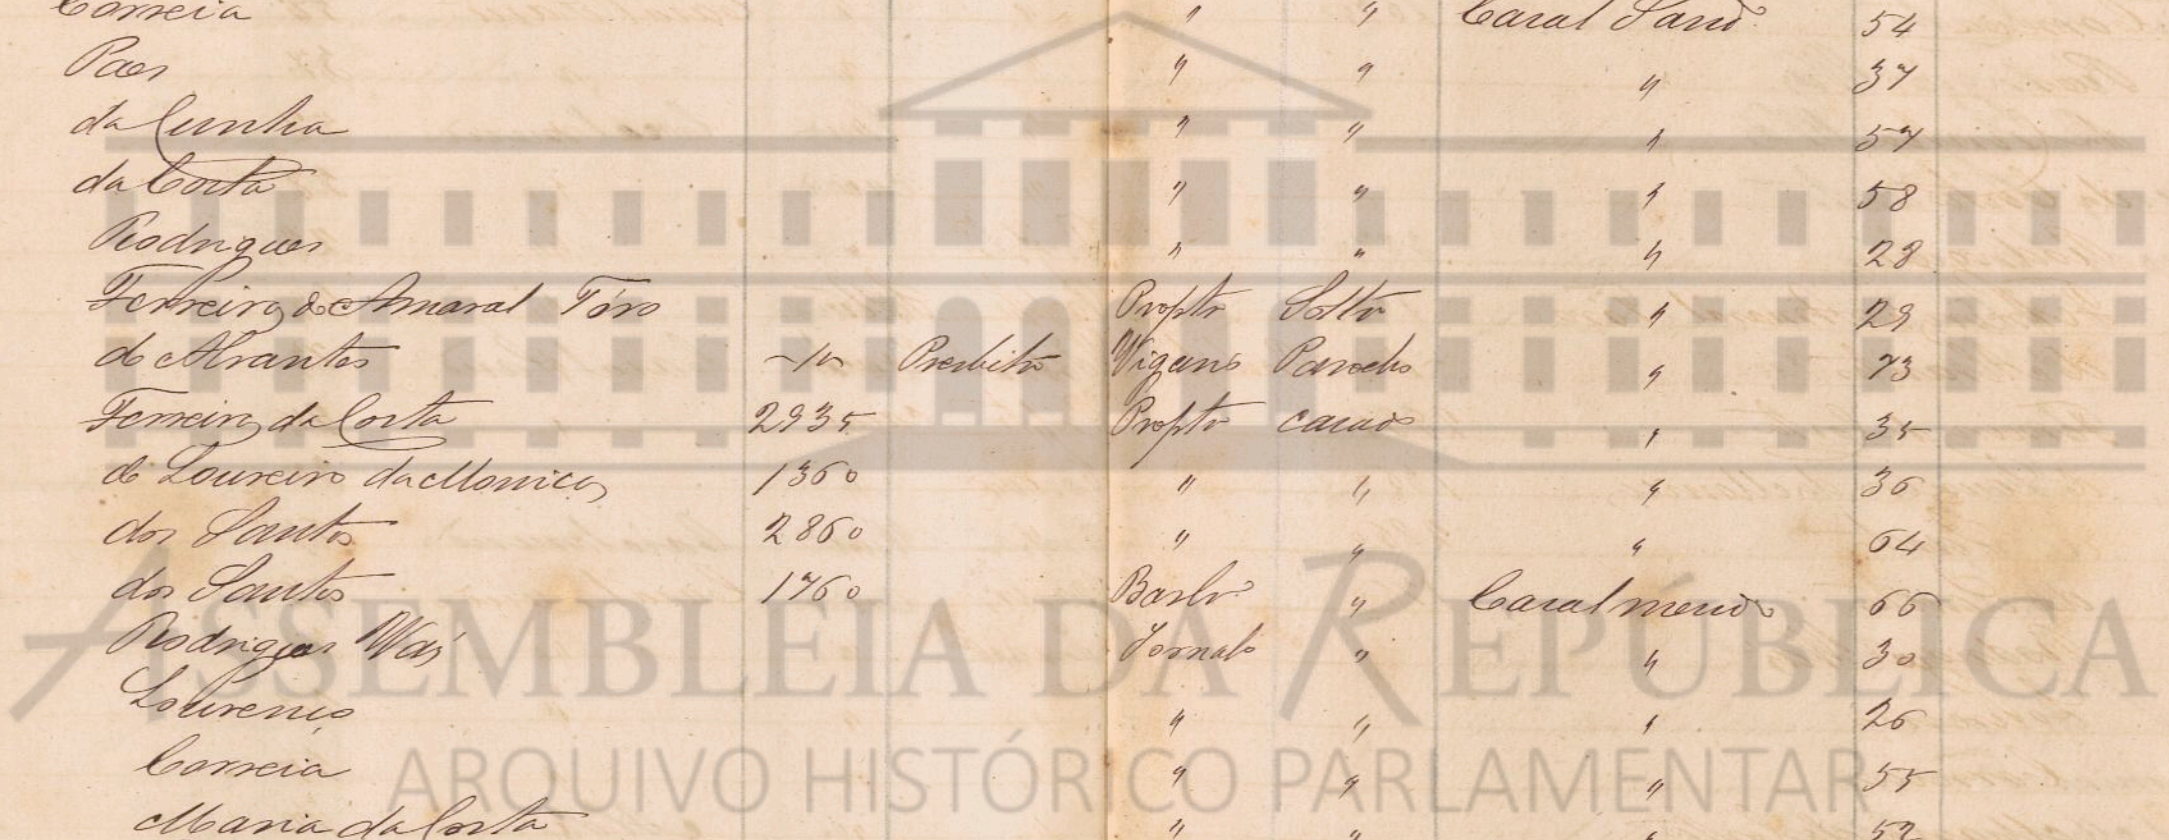 Correia " " Casal Sand.º 54
Paes " " " 37
da Cunha " " " 57
da Costa " " " 58
Rodrigues " " " 28
Ferreira do Amaral Tóro Propº Soltrº " 29
de Abrantes Presbitº Vigario Parocho " 73
Ferreira da Costa 2935 Propº casado " 35
de Loureiro da Monica 1360 " " " 36
dos Santos 2860 " " " 64
dos Santos 1760 Barbº " Casalmendº 66
Rodrigues Jornalº " " 30
Lourenço " " " 26
Correia " " " 55
Maria da Costa " " " 52
ASSEMBLEIA DA REPÚBLICA
ARQUIVO HISTÓRICO PARLAMENTAR